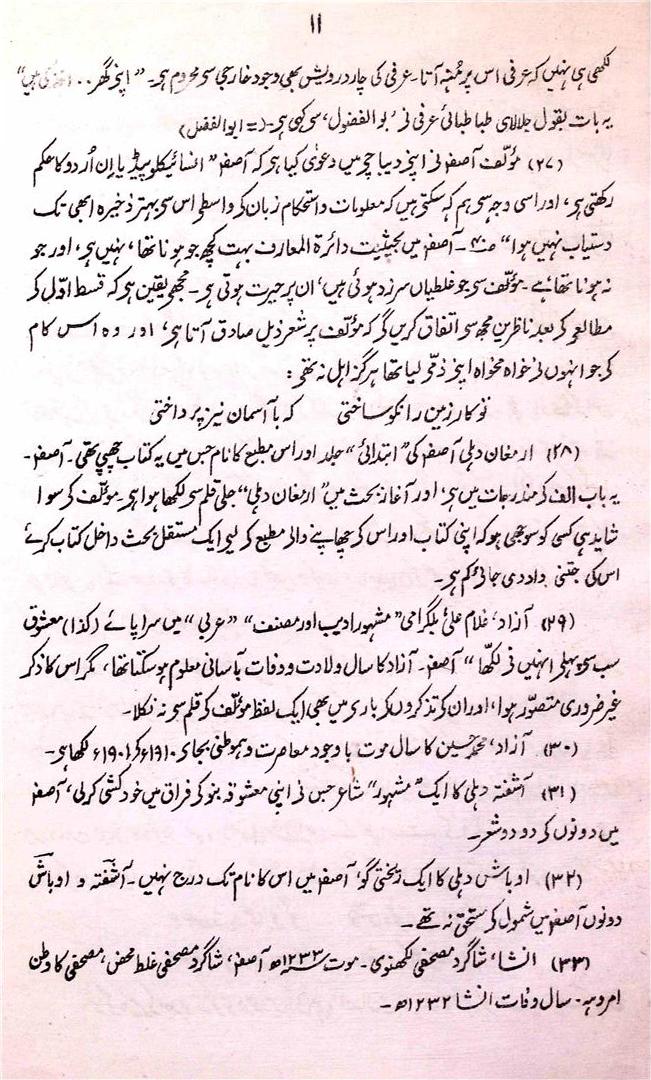 ۱۱
لکھی ہی نہیں کہ عرفی اس پر مُنہ آتا۔ عرفی کی چار درویش بھی وجود خارجی سے محروم ہے۔ "اپنے گھر..
یہ بات بقول جلالای طباطبائی عرفی نے 'بوالفضول' سے کہی ہے۔ (= ابوالفضل)
(۲۷) مؤلّف آصفہ نے اپنے دیباچے میں دعویٰ کیا ہے کہ آصفہ "انسائیکلوپیڈیا اِن اُردو کا حکم
رکھتی ہے، اور اسی وجہ سے ہم کہہ سکتے ہیں کہ معلومات و استحکام زبان کے واسطے اس سے بہتر ذخیرہ ابھی تک
دستیاب نہیں ہوا" ص۴۰۔ آصفہ میں بحیثیت دائرۃ المعارف بہت کچھ جو ہونا تھا، نہیں ہے، اور جو
نہ ہونا تھا، ہے۔ مؤلّف سے جو غلطیاں سرزد ہوئی ہیں، ان پر حیرت ہوتی ہے۔ مجھے یقین ہے کہ قسط اوّل کے
مطالعے کے بعد ناظرین مجھ سے اتفاق کریں گے کہ مؤلّف پر شعر ذیل صادق آتا ہے، اور وہ اس کام
کے جو انہوں نے خواہ مخواہ اپنے ذمّے لیا تھا ہرگز اہل نہ تھے :
تو کار زمین را نکو ساختی کہ با آسمان نیز پرداختی
(۲۸) ارمغان دہلی آصفہ کی "ابتدائی" جلد اور اس مطبع کا نام جس میں یہ کتاب چھپی تھی۔ آصفہ۔
یہ باب الف کے مندرجات میں ہے، اور آغاز بحث میں "ارمغان دہلی" جلی قلم سے لکھا ہوا ہے۔ مؤلّف کے سوا
شاید ہی کسی کو سوجھی ہو کہ اپنی کتاب اور اس کے چھاپنے والے مطبع کے لیے ایک مستقل بحث داخل کتاب کرے
اس کی جتنی داد دی جائے کم ہے۔
(۲۹) آزاد، غلام علی بلگرامی "مشہور ادیب اور مصنف" "عربی" میں سراپائے (کذا) معشوق
سب سے پہلے انہیں نے لکھّا" آصفہ۔ آزاد کا سال ولادت و وفات بآسانی معلوم ہو سکتا تھا، مگر اس کا ذکر
غیر ضروری متصوّر ہوا، اور ان کے تذکروں کے بارے میں بھی ایک لفظ مؤلّف کے قلم سے نہ نکلا۔
(۳۰) آزاد، محمد حسین کا سال موت باوجود معاصرت و ہموطنی بجائے ۱۹۱۰ء کے ۱۹۰۱ء لکھا ہے۔
(۳۱) آشفتہ دہلی کا ایک "مشہور" شاعر جس نے اپنی معشوقہ بنو کے فراق میں خودکشی کر لی، آصفہ
میں دونوں کے دو دو شعر۔
(۳۲) اوباش دہلی کا ایک ریختی گو، آصفہ میں اس کا نام تک درج نہیں۔ آشفتہ و اوباش
دونوں آصفہ میں شمول کے مستحق نہ تھے۔
(۳۳) انشا، شاگرد مصحفی لکھنوی۔ موت سنہ ۱۲۳۳ھ آصفہ، شاگرد مصحفی غلط محض، مصحفی کا وطن
امروہہ۔ سال وفات انشا ۱۲۳۲ھ۔